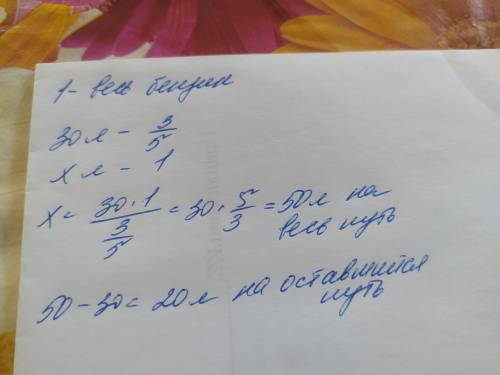 1 - весь бензин
30 л - 3/5
х л - 1
х = 30·1 / 3/5 = 30 · 5/3 = 50 л на весь путь
50 - 30 = 20 л на оставшийся путь